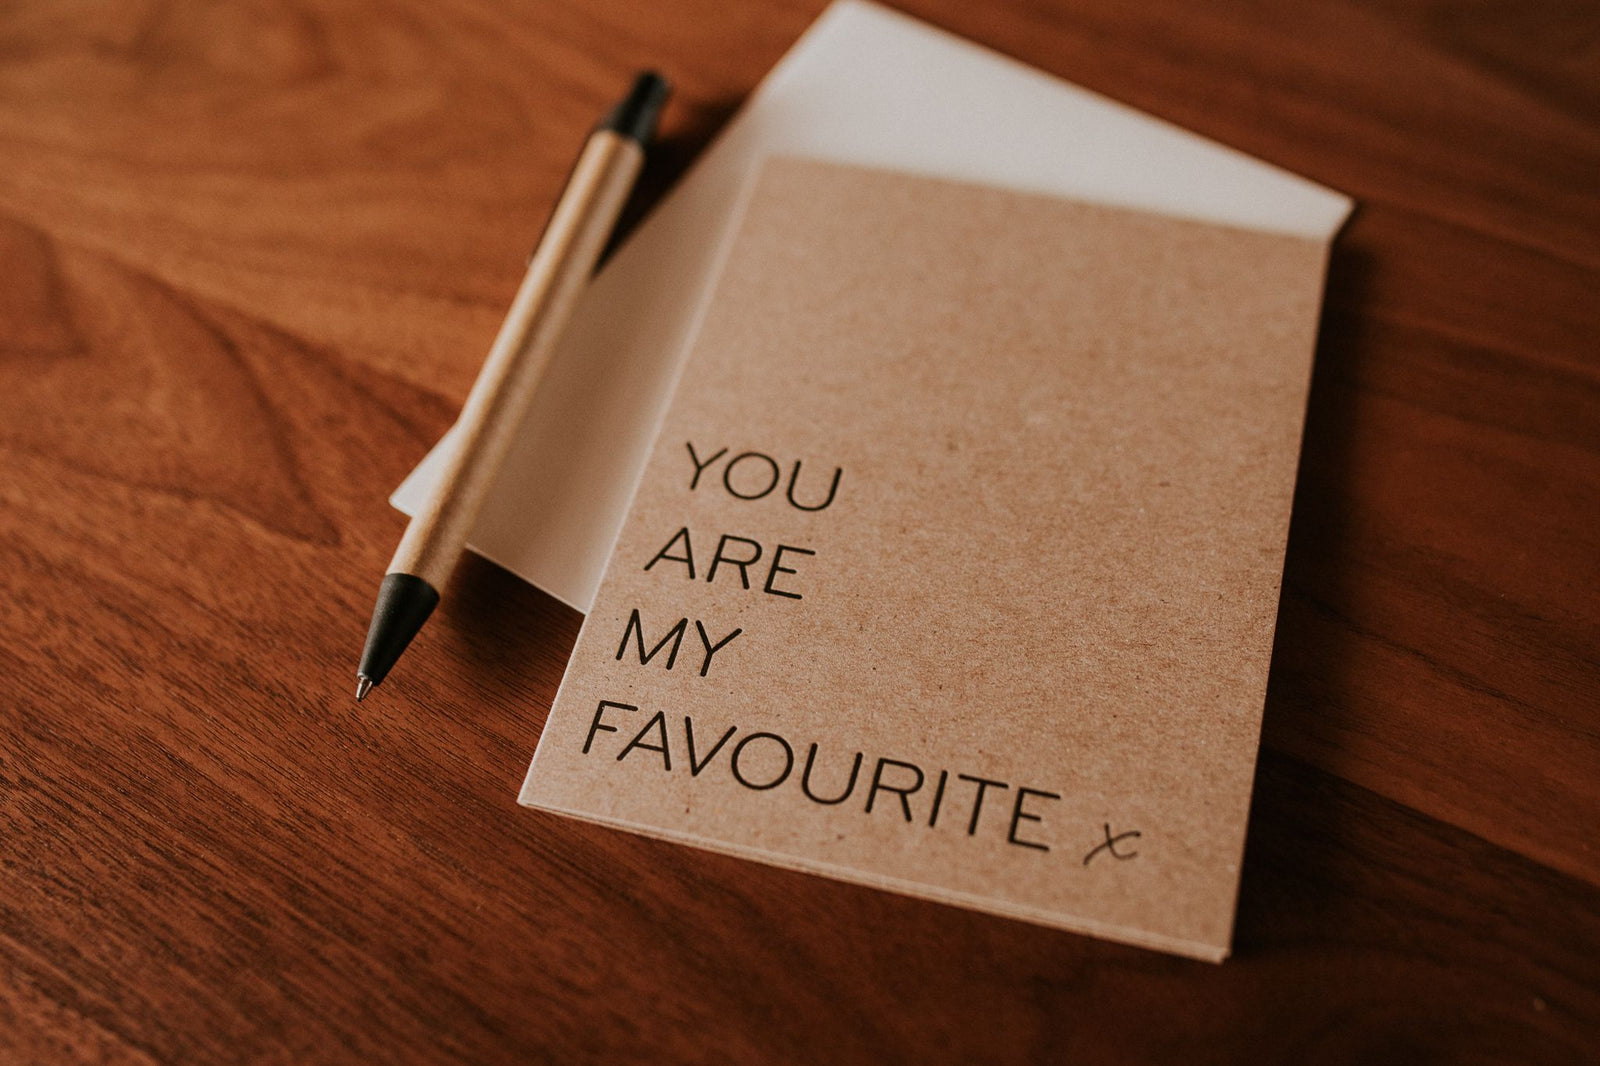 YOU
ARE
MY
FAVOURITE x